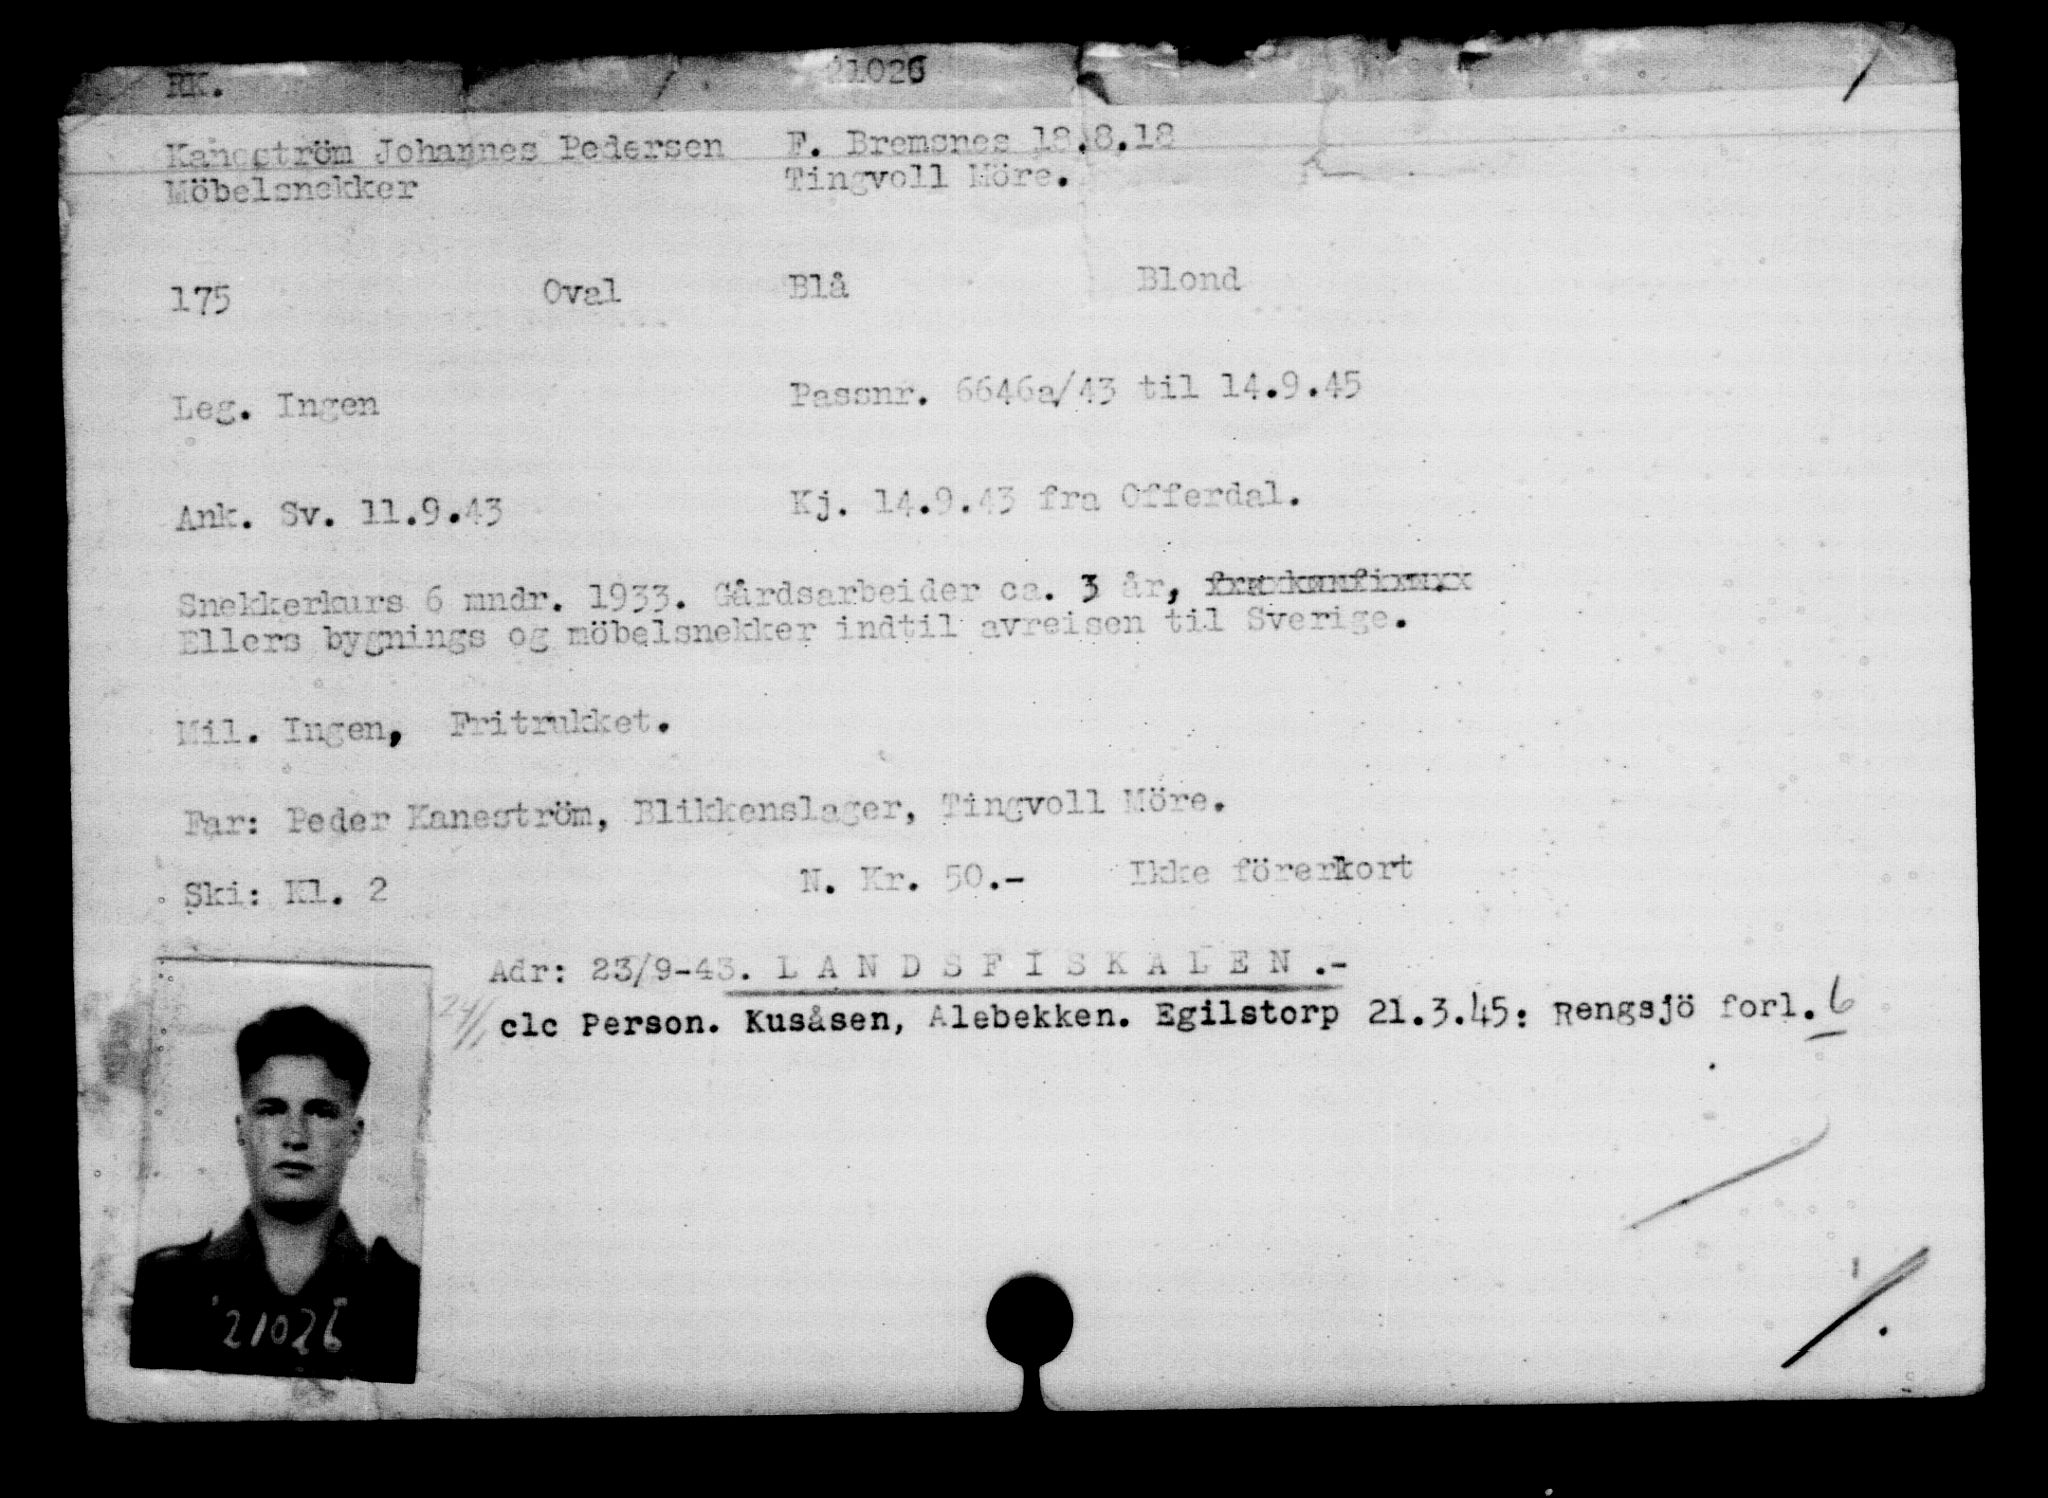 RK. 21026
Kaneström Johannes Pedersen F. Bremsnes 18.8.18
Möbelsnekker Tingvoll Möre.
175 Oval Blå Blond
Leg. Ingen Passnr. 6646a/43 til 14.9.45
Ank. Sv. 11.9.43 Kj. 14.9.43 fra Offerdal.
Snekkerkurs 6 mndr. 1933. Gårdsarbeider ca. 3 år,
Ellers bygnings og möbelsnekker indtil avreisen til Sverige.
Mil. Ingen, Fritrukket.
Far: Peder Kaneström, Blikkenslager, Tingvoll Möre.
Ski: Kl. 2 N. Kr. 50.- Ikke förerkort
Adr: 23/9-43. L A N D S F I S K A L E N .-
clc Person. Kusåsen, Alebekken. Egilstorp 21.3.45: Rengsjö forl. 6
21026